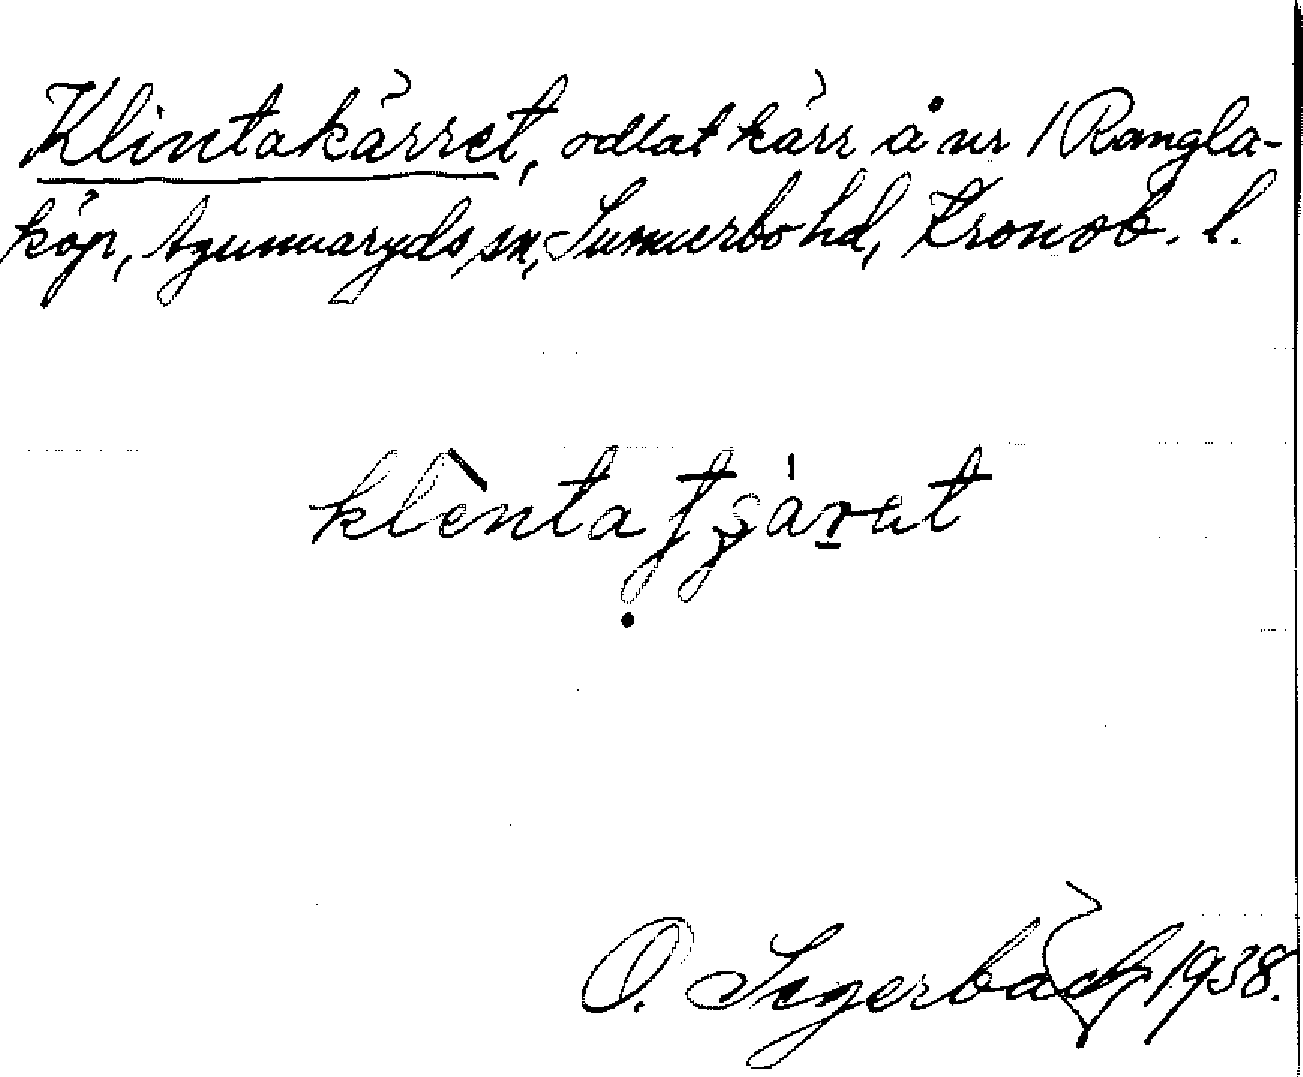 Klintakärret, odlat kärr å nr 1 Rangla-
köp, Agunnaryds sn, Sunnerbo hd, Kronob. l.
O. Segerbäck 1938.